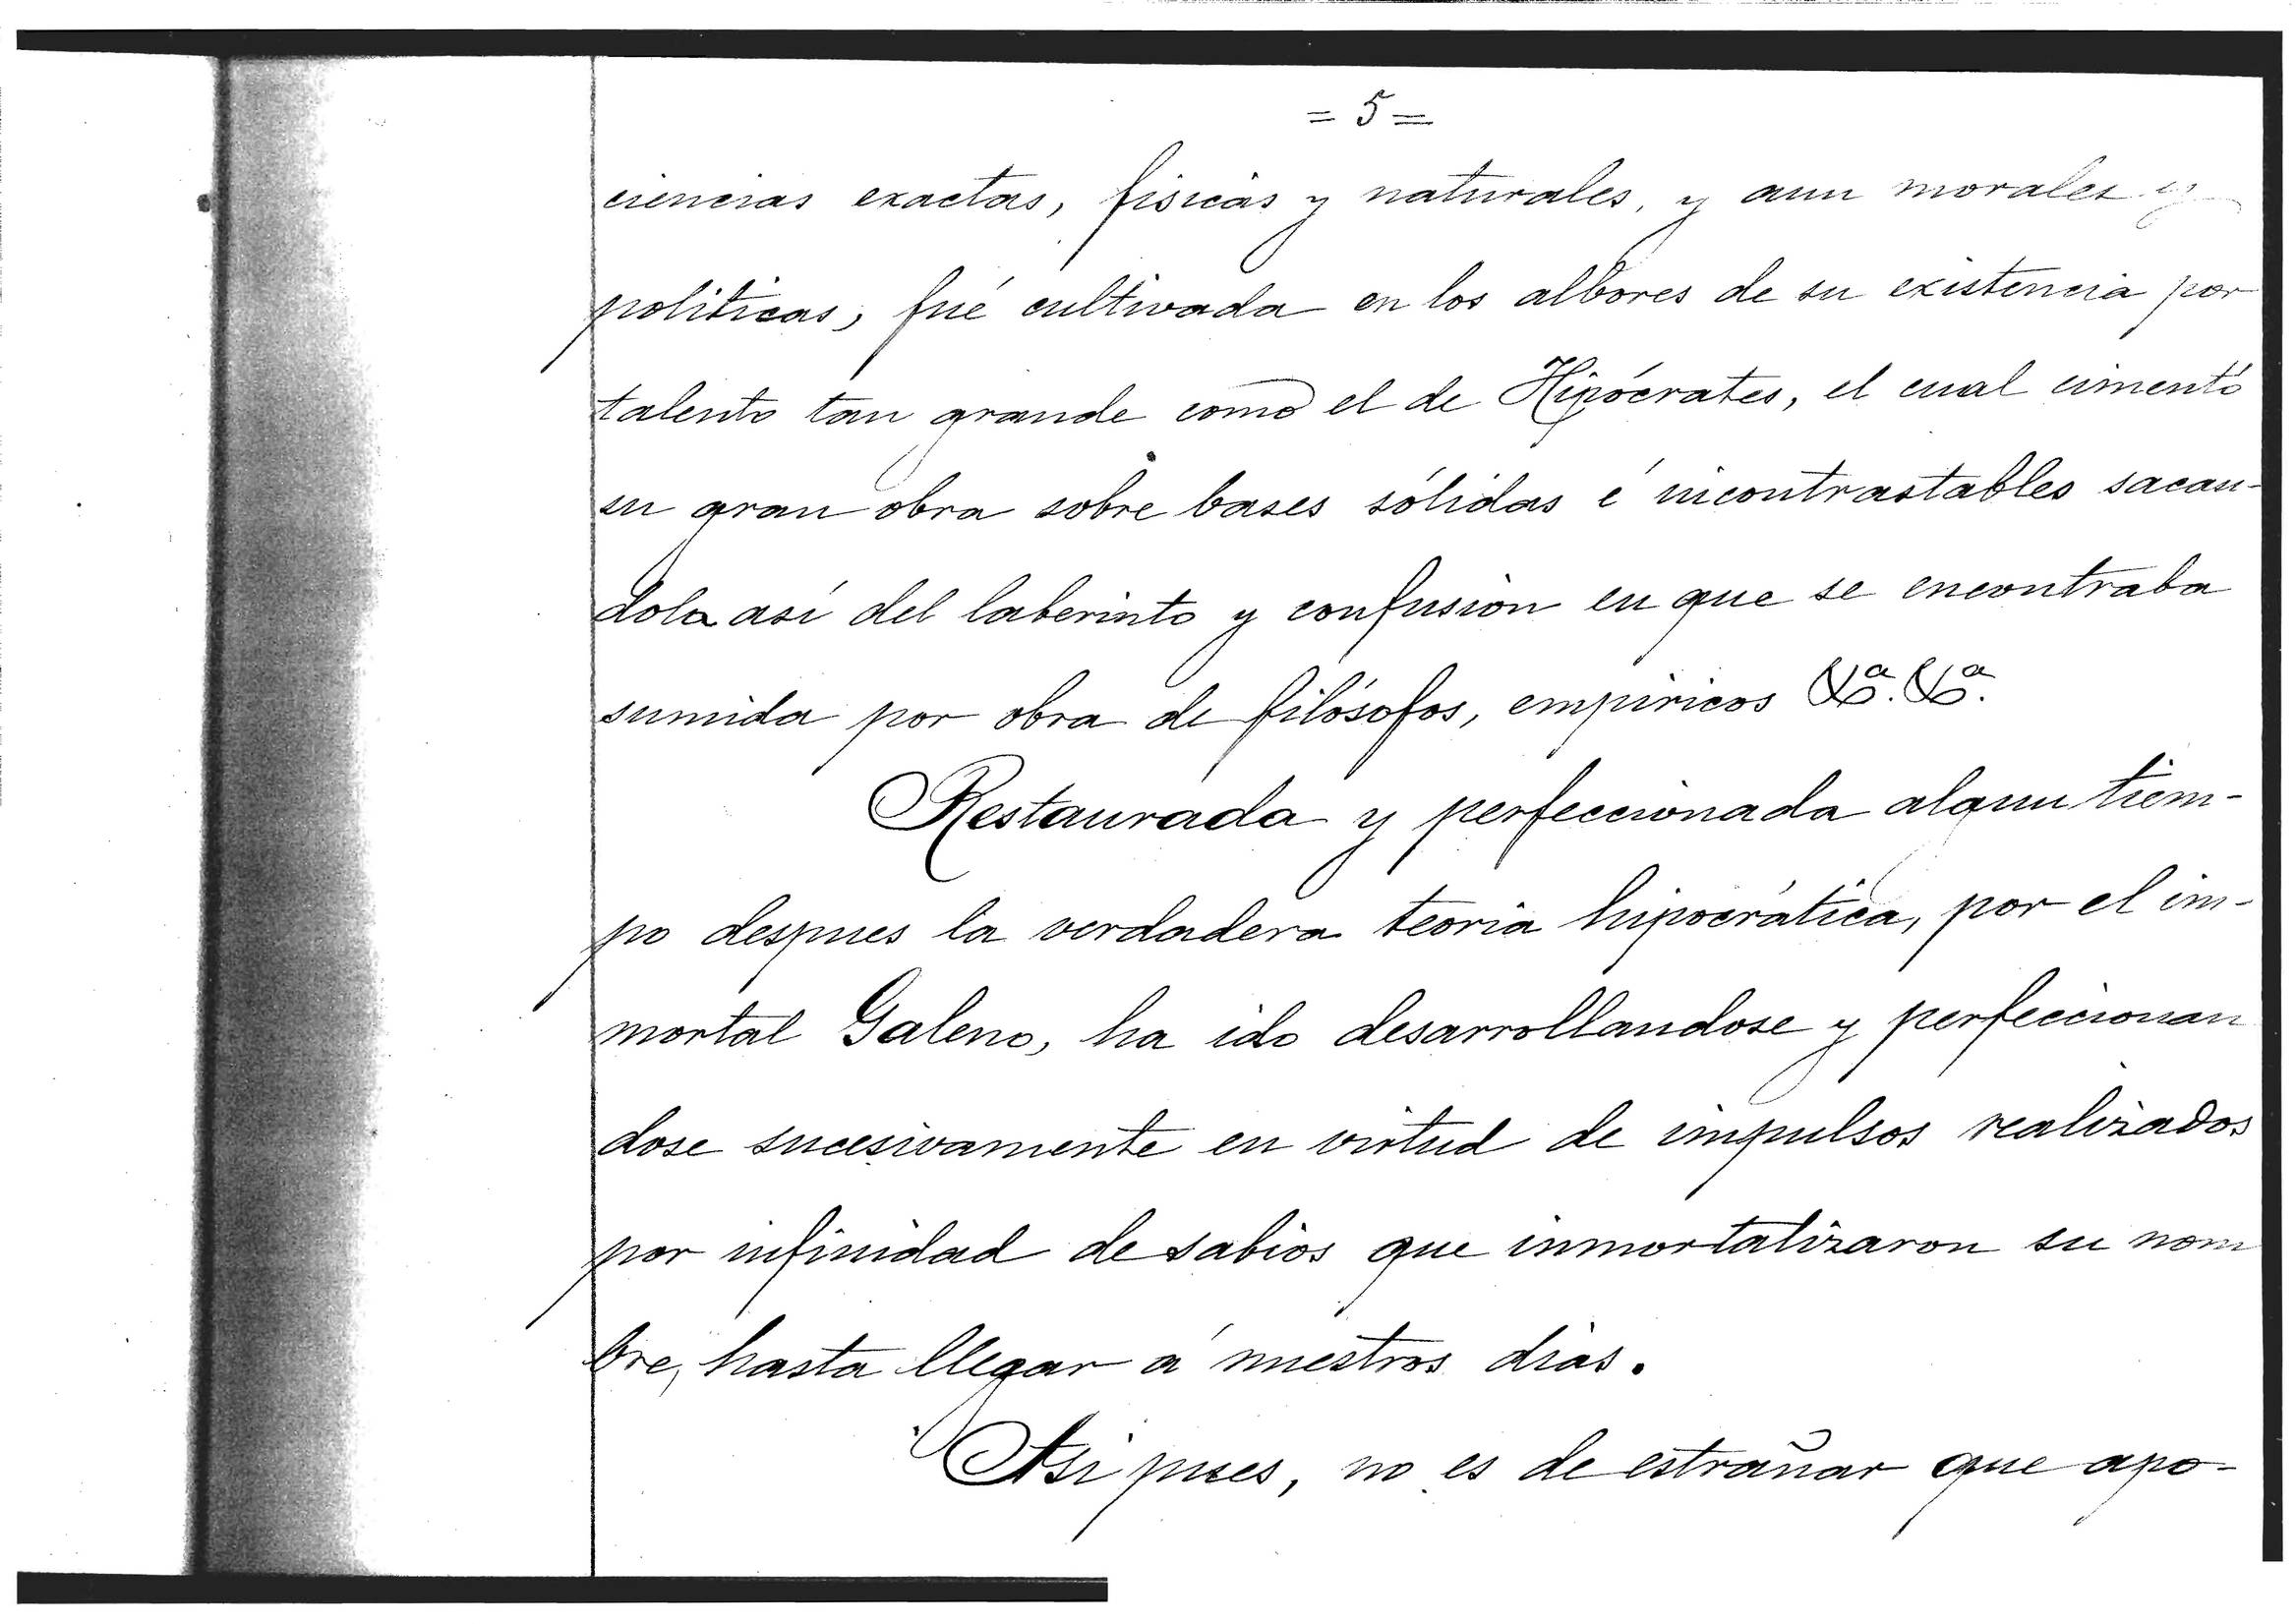 = 5 =
ciencias exactas, fisicas y naturales, y aun morales y
politicas, fué cultivada en los albores de su existencia por
talento tan grande como el de Hipócrates, el cual cimentó
su gran obra sobre bases sólidas é incontrastables sacan-
dola así del laberinto y confusion en que se encontraba
sumida por obra de filósofos, empiricos &ª. &ª.
Restaurada y perfeccionada algun tiem-
po despues la verdadera teoria hipocrática, por el in-
mortal Galeno, ha ido desarrollandose y perfeccionan
dose sucesivamente en virtud de impulsos realizados
por infinidad de sabios que inmortalizaron su nom
bre, hasta llegar á nuestros dias.
Asi pues, no es de estrañar que apo-